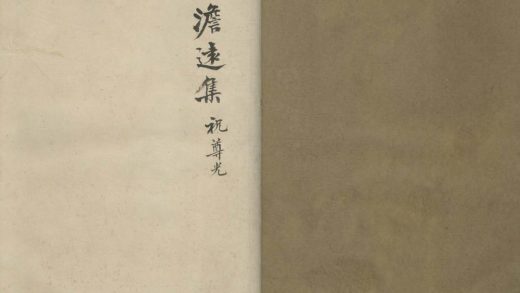 澹遠集
祝尊光